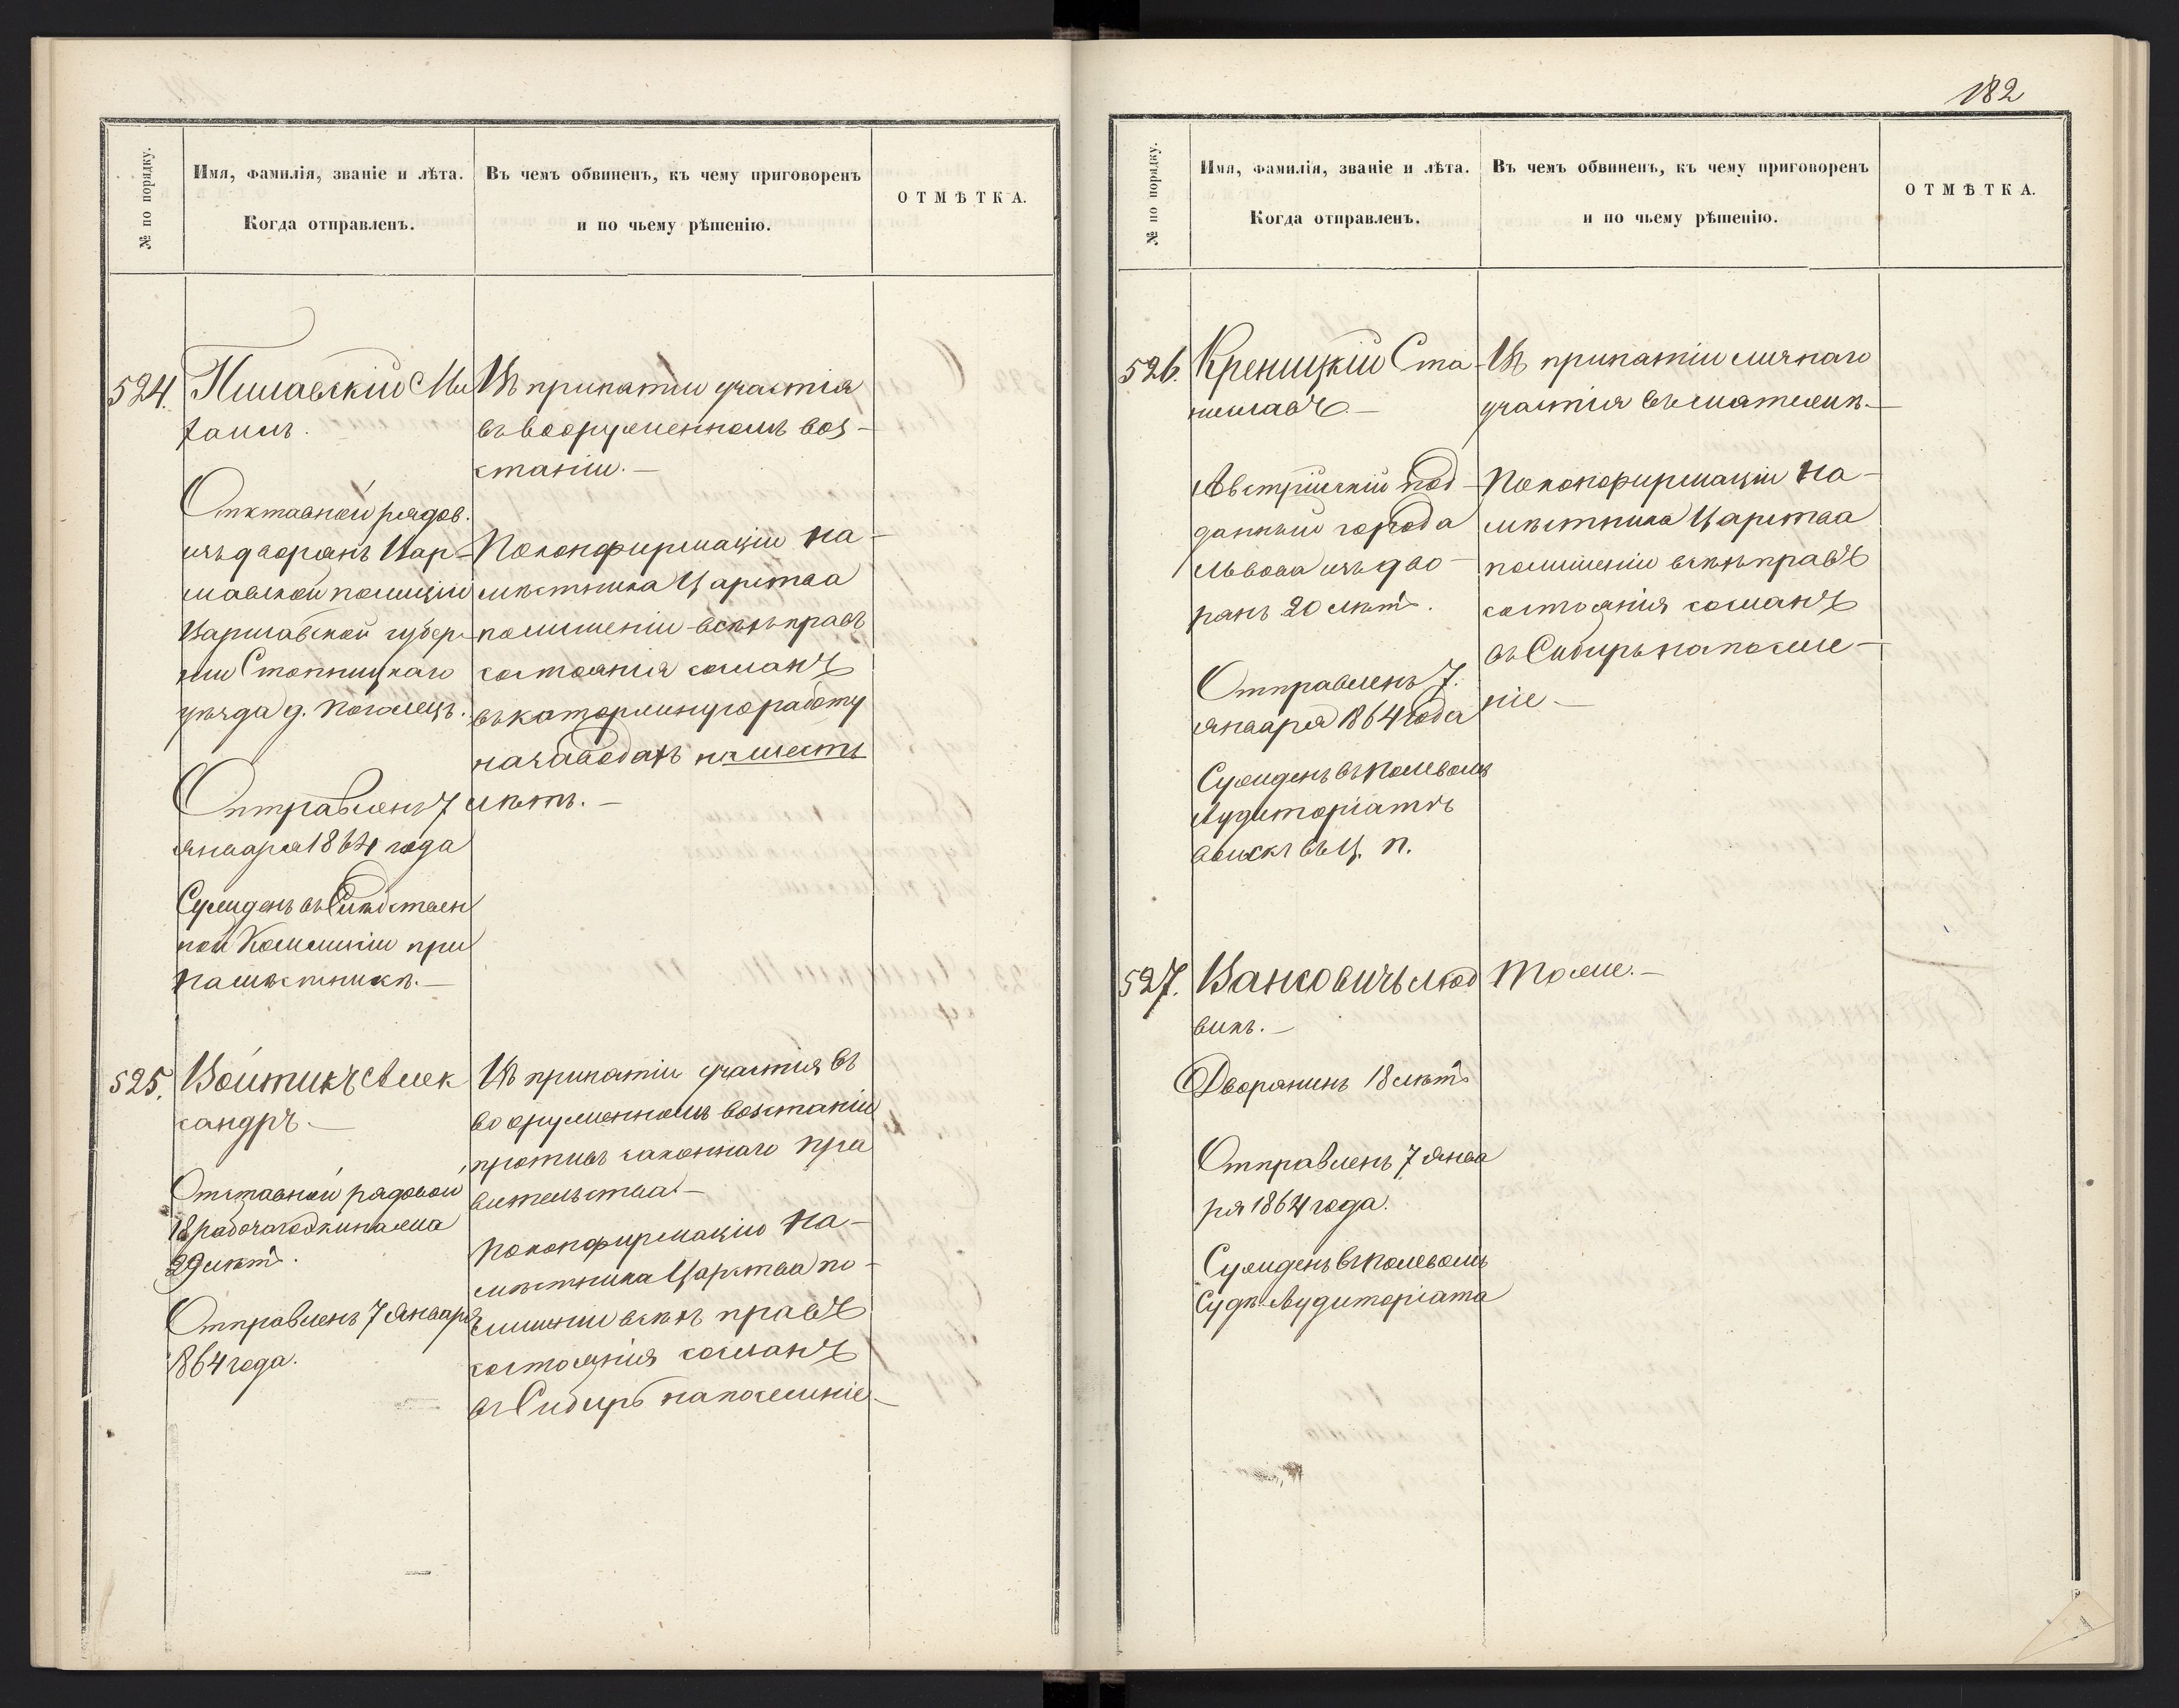 № по порядку.
Имя, фамилія, званіе и лѣта.
Когда отправленъ.
Въ чемъ обвиненъ, къ чему приговоренъ
и по чьему рѣшенію.
ОТМѢТКА.
524.
Пилавскій Ми
хаилъ.
Отставной рядов.
изъ дворянъ Вар-
шавской полиціи
Варшавской губер-
ніи Стопницкаго
уѣзда д.
Отправленъ 7
января 1864 года
Сужденъ въ Слѣдствен
ной Коммисіи при
Намѣстникѣ.—
Въ принятіи участія
въ вооруженномъ воз-
станіи.—
По конфирмаціи На-
мѣстника Царства
по лишеніи всѣхъ правъ
состоянія сосланъ
въ каторжную работу
на заводахъ на шесть
лѣтъ.—
525.
Войтикъ Алек
сандръ.—
Отставной рядовой
29 лѣтъ.
Отправленъ 7 Января
1864 года.
Въ принятіи участія въ
вооруженномъ возстаніи
противъ законнаго пра
вительства.—
По конфирмаціи На-
мѣстника Царства по
лишеніи всѣхъ правъ
состоянія сосланъ
въ Сибирь на поселеніе—
182
№ по порядку.
Имя, фамилія, званіе и лѣта.
Когда отправленъ.
Въ чемъ обвиненъ, къ чему приговоренъ
и по чьему рѣшенію.
ОТМѢТКА.
526.
Креницкій Ста-
ниславъ.—
Австрійскій под-
данный города
Львова изъ дво-
рянъ 20 лѣтъ.
Отправленъ 7.
января 1864 года
Сужденъ въ Полевомъ
Аудиторіатѣ
войскъ въ Ц. П.
Въ принятіи личнаго
участія въ мятежѣ.—
По конфирмаціи На-
мѣстника Царства
по лишеніи всѣхъ правъ
состоянія сосланъ
въ Сибирь на поселе-
ніе—
527.
Ванковичъ Люд
викъ.—
Дворянинъ 18 лѣтъ
Отправленъ 7 Янва
ря 1864 года.
Сужденъ въ Полевомъ
Судѣ Аудиторіата
Тоже.—